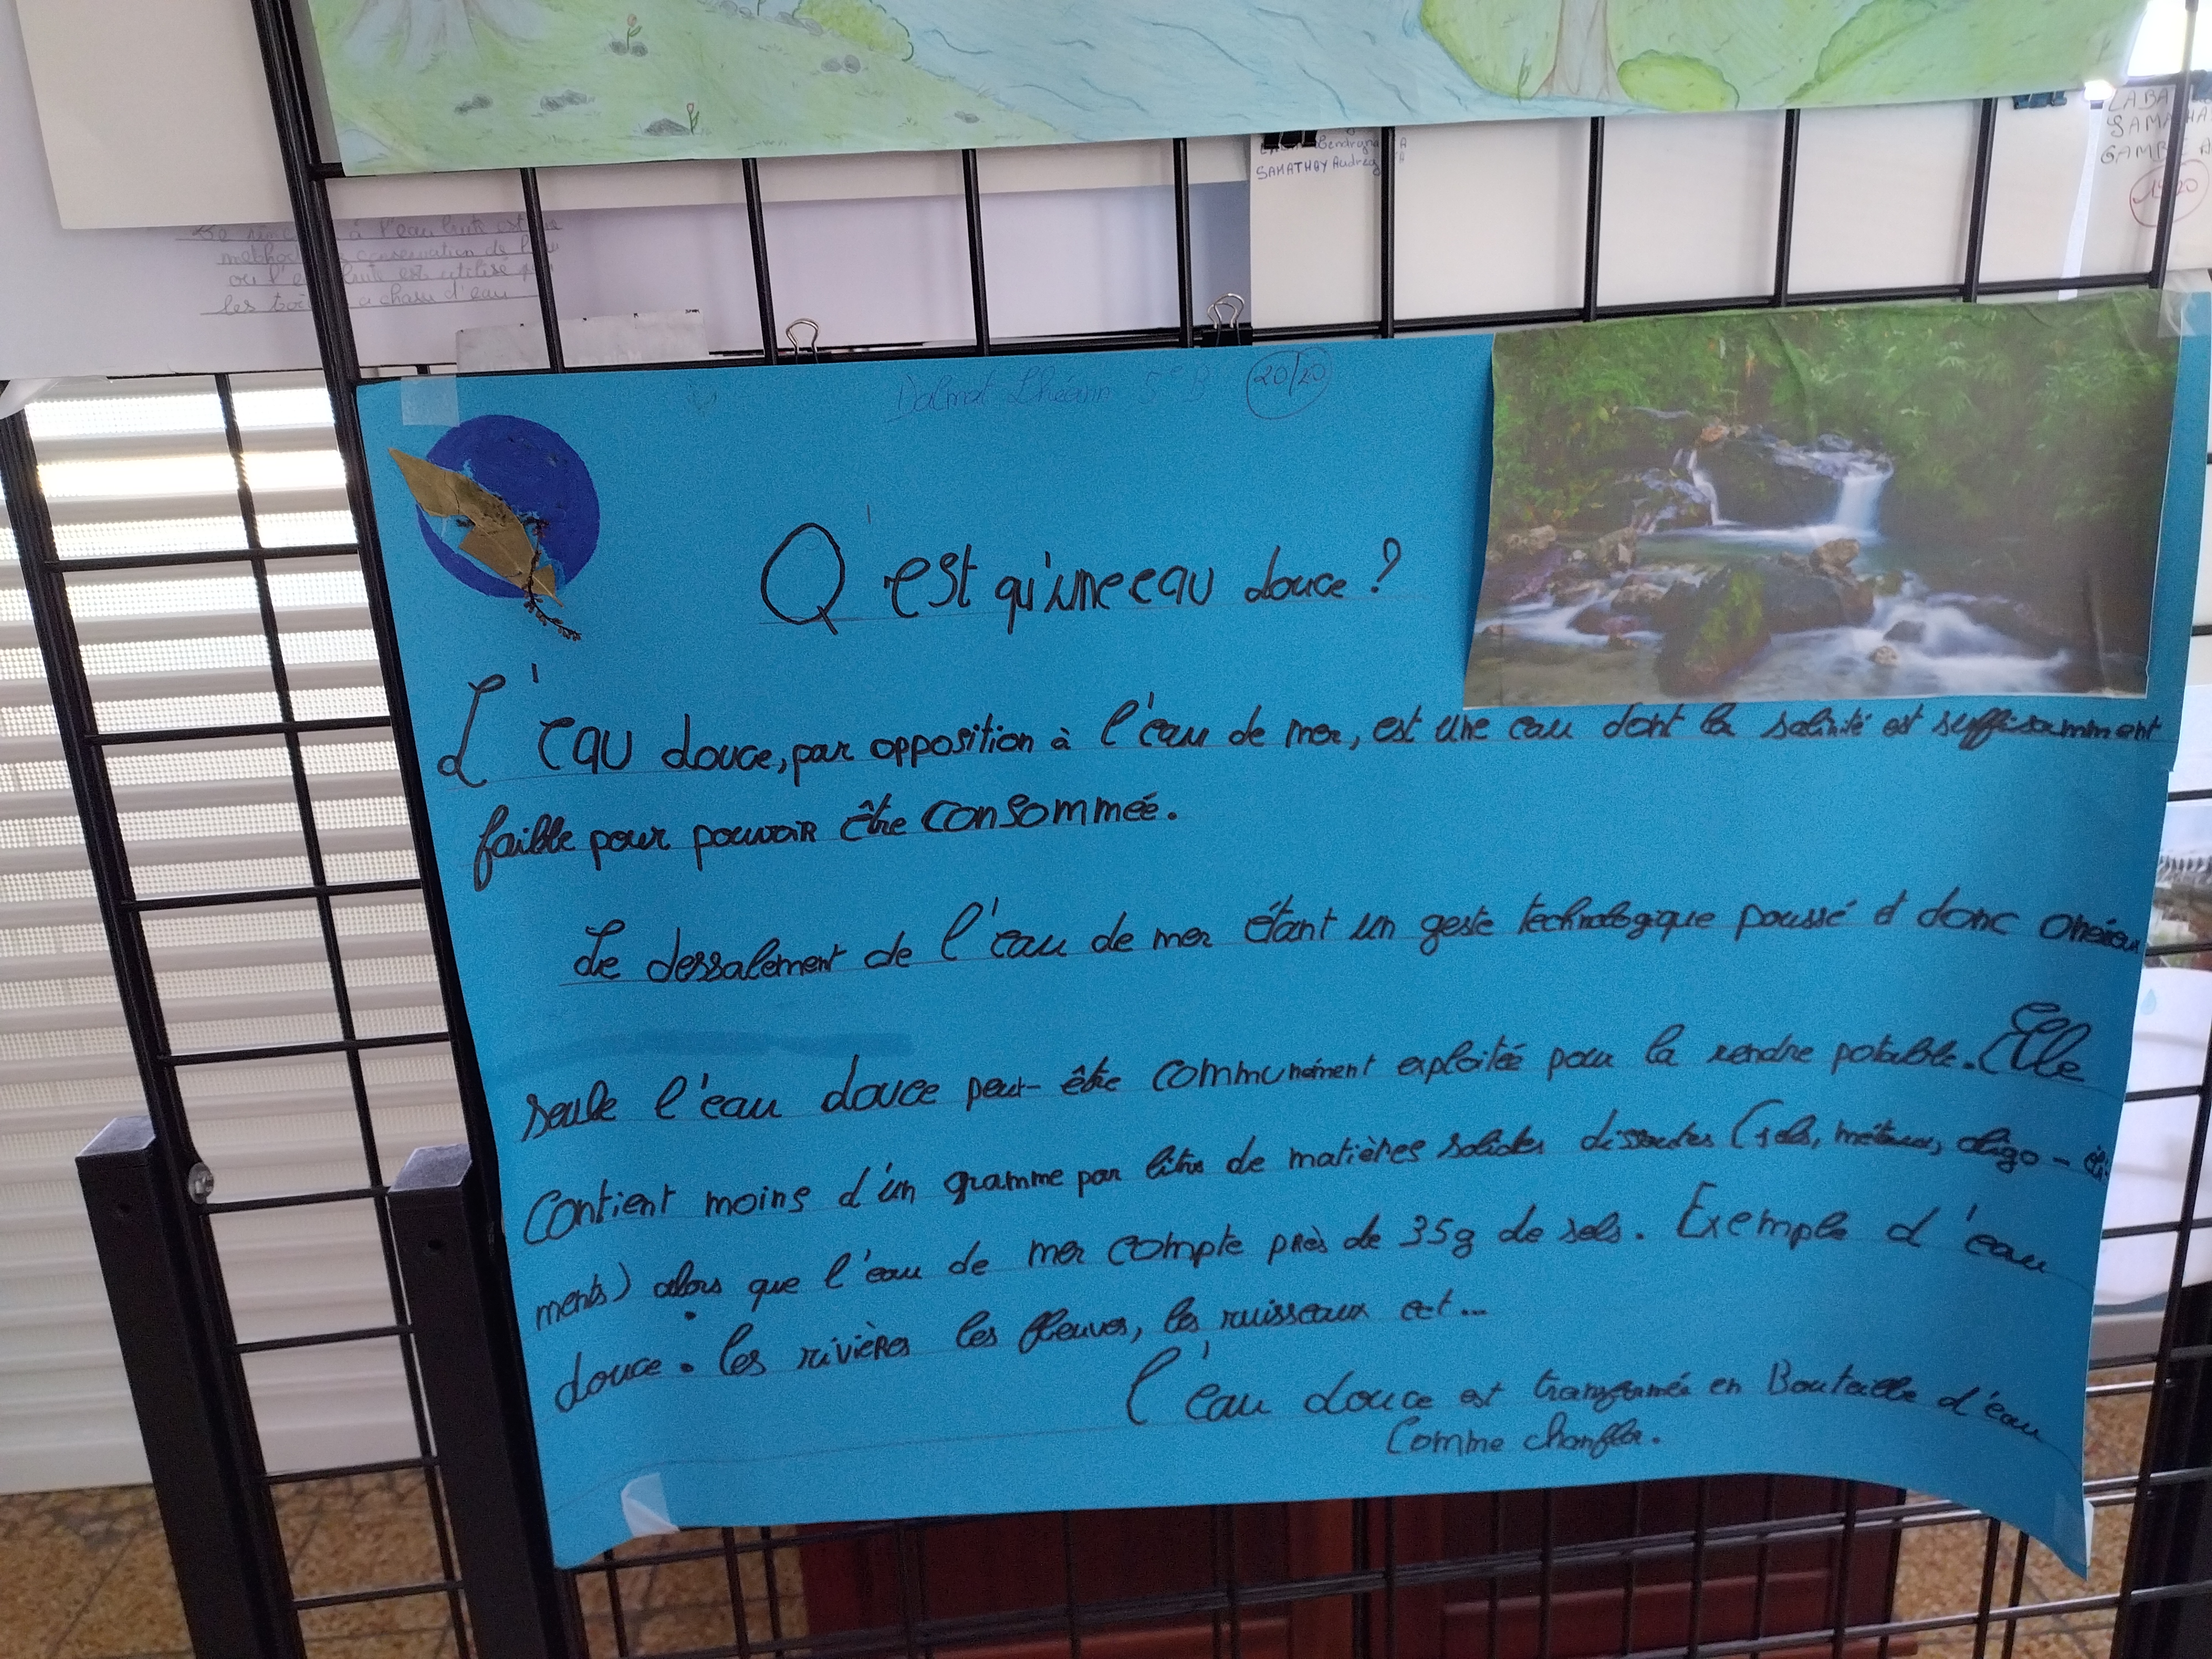 SAMATHOY Audrey
LABA
SAMA HA
GAMB A
Se
à l'eau
conservation de l'
ou l'e est utilisé
les a chasse d'eau
Dalmat Lhéann 5e B 20/20
Q'est qu'une eau douce ?
L'eau douce, par opposition à l'eau de mer, est une eau dont la salinité est suffisamment
faible pour pouvoir être consommée.
Le dessalement de l'eau de mer étant un geste technologique poussé et donc onéreux
seule l'eau douce peut-être communément exploitée pour la rendre potable. Elle
Contient moins d'un gramme par litre de matières solides dissoutes (sels, métaux, oligo-élé
ments) alors que l'eau de mer compte près de 35g de sels. Exemple d'eau
douce : les rivières les fleuves, les ruisseaux ect...
l'eau douce est transformée en Bouteille d'eau
Comme chanflor.